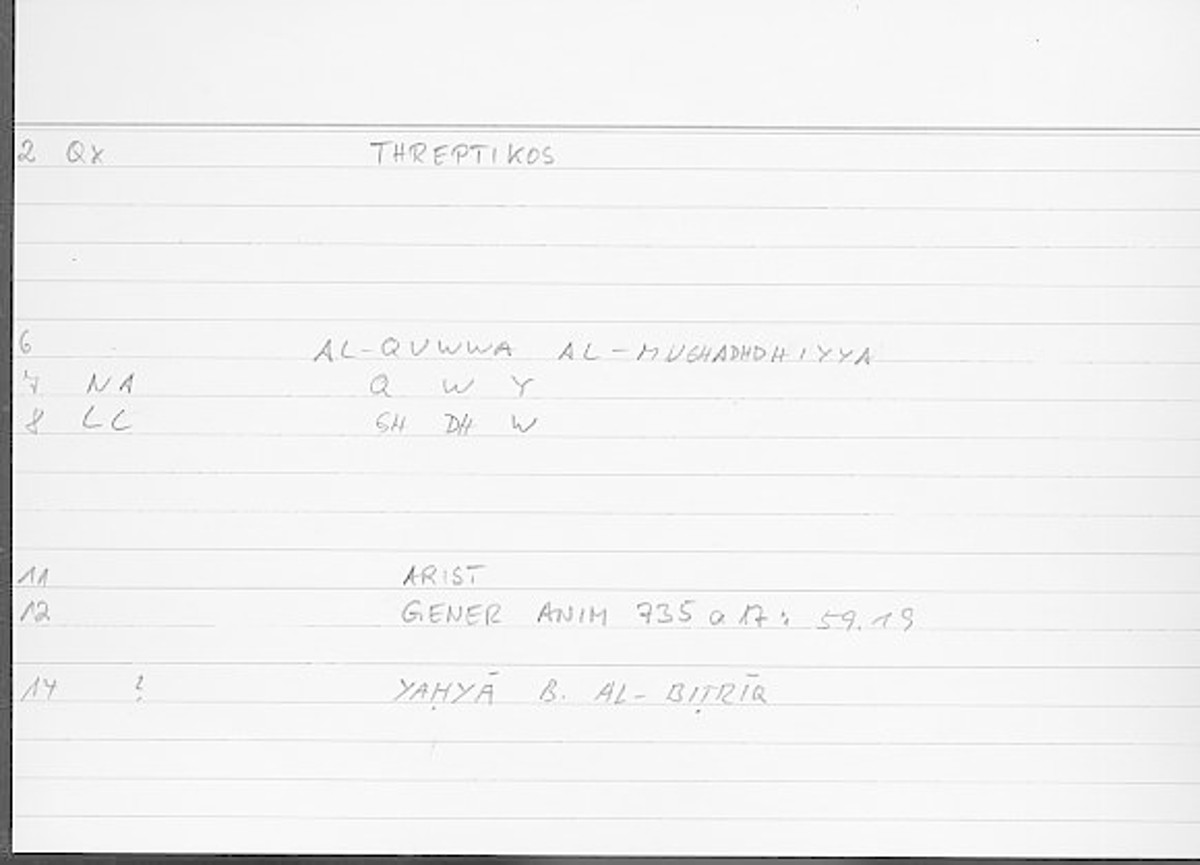 2 QX THREPTIKOS
6 AL-QUWWA AL-MUGHADHDHIYYA
7 NA Q W Y
8 LC GH DH W
11 ARIST
12 GENER ANIM 735 a 17 : 59.19
14 ? YAḤYĀ B. AL-BIṬRĪQ